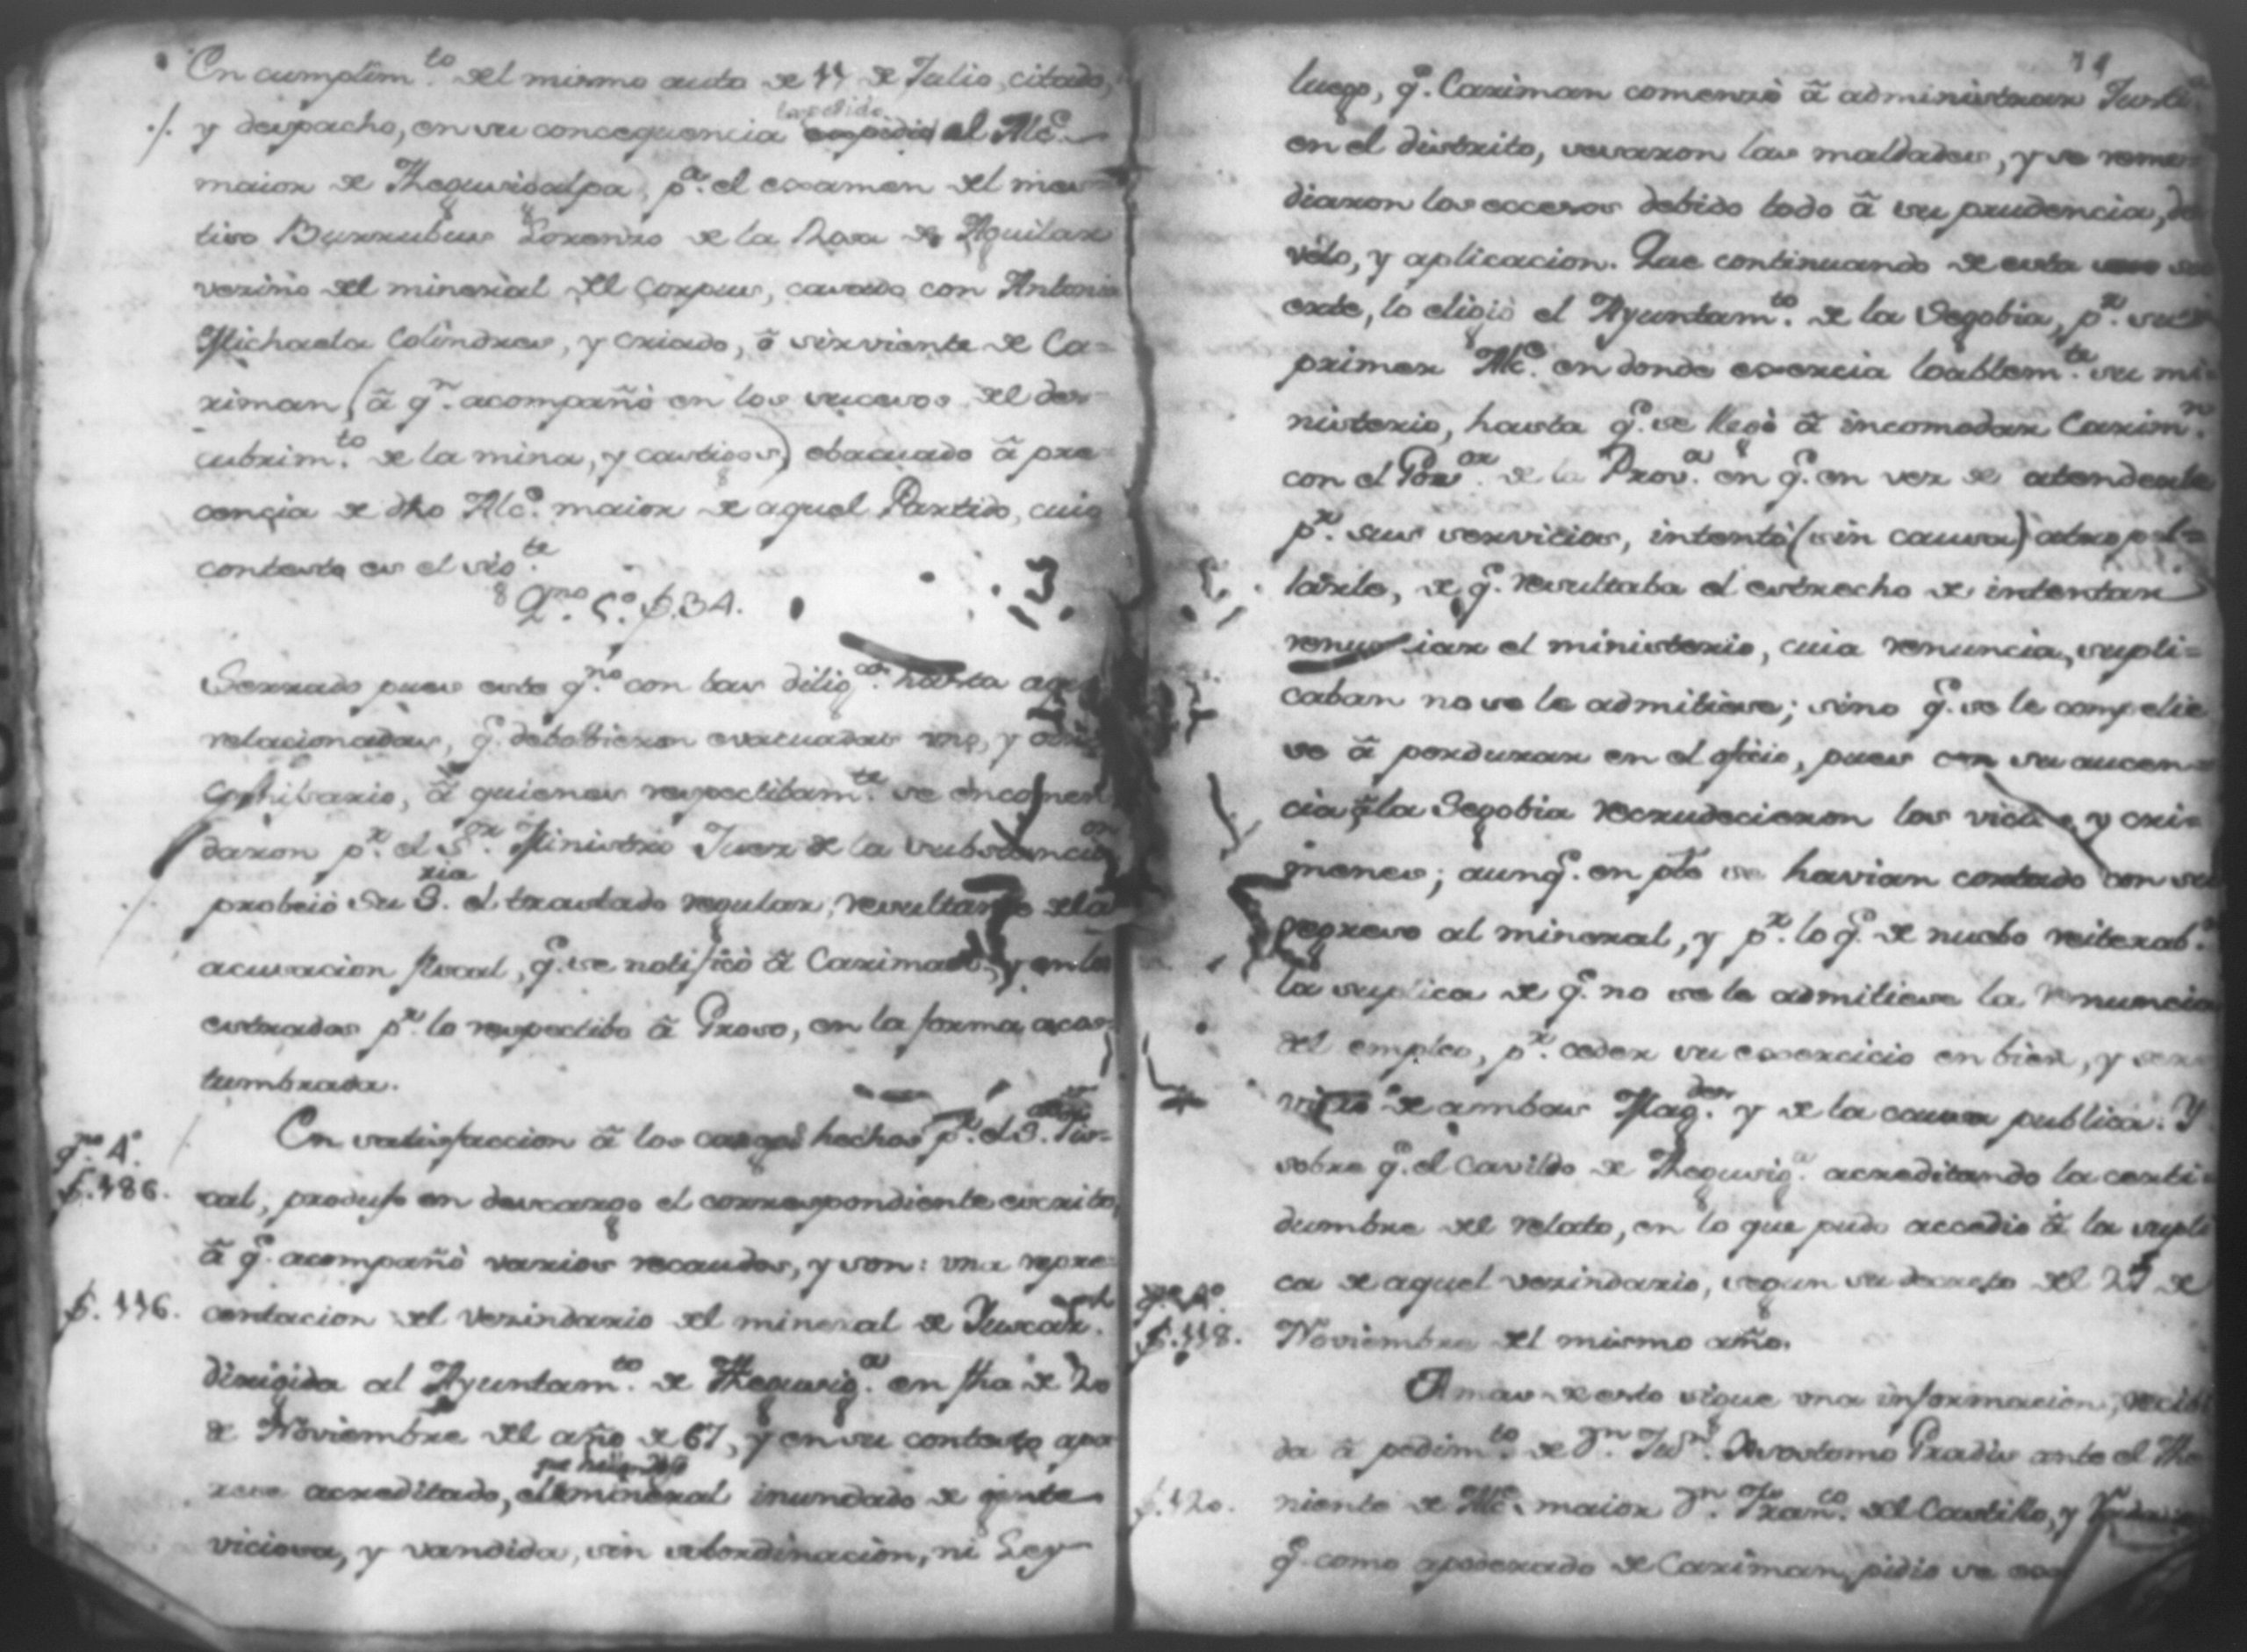 En cumplim.to del mismo auto de 11 de Julio, citado,
y despacho, en su concequencia expedido al Alc.e
maior de Thegusigalpa, p.a el examen del mes-
tiso Burrubus Lorenzo de la Rosa de Aguilar
vezino del mineral del Corpus, casado con Antonia
Michaela Colindres, y criado, ô sirviente de Ca-
riman (â q.n acompañò en los sucesos del des-
cubrim.to de la mina, y castigos) ebacuado â pre-
cencia de dho Alc.e maior de aquel Partido, cuio
contexto es el sig.te
Q.no 5.o f.34.
Serrado pues este q.no con las dilig.as hasta aqui
relacionadas, q.e debolbieron evacuadas uno, y otro
Comisario, â quienes respectibam.te se encomen
daron p.r el S.or Ministro Juez de la substancia.on
probeió su S.ria el traslado regular, resultante dela
acusacion fiscal, q.e se notificò â Cariman, y en los
estrados p.r lo respectibo â Proso, en la forma acos-
tumbrada.
q.no 4.o
En satisfaccion â los cargos hechos p.r el S. Fis-
f.186.
cal, produjo en descargo el correspondiente escrito,
â q.e acompañò varios recaudos, y son: una repre-
f.116.
centacion del vezindario del mineral de Yuscar.an
dirigida al Ayuntam.to de Thegusig.a en fha de 20
de Noviembre del año de 67, y en su contexto apa
rece acreditado, el mineral inundado de gente
viciosa, y vandida, sin subordinacion, ni Ley
luego, q.e Cariman comenzò â administrar Justi.a
en el distrito, sesaron las maldades, y se reme-
diaron los eccesos debido todo â su prudencia, des
velo, y aplicacion. Que continuando de esta
erte, lo eligiò el Ayuntam.to de la Segobia, p.r su
primer Alc.e en donde exercia loablem.te su mi-
nisterio, hasta q.e se llegò â incomodar Carim.n
con el Gov.or de la Prov.a en q.e en vez de atenderle
p.r sus servicios, intentò (sin causa) atropel-
larle, de q.e resultaba el estrecho de intentar
renunciar el ministerio, cuia renuncia, supli-
caban no se le admitiese; sino q.e se le compelie
se â perdurar en el oficio, pues con su aucen-
cia â la Segobia recrudecieron los vicios, y cri-
menes; aunq.e en pte se havian cortado con su
regreso al mineral, y p.r lo q.e de nuebo reiterab.n
la suplica de q.e no se le admitiese la renuncia
del empleo, p.r ceder su exercicio en bien, y ser-
vicio de ambas Mag.des y de la causa publica. Y
sobre q.e el Cavildo de Thegusig.a acreditando la certi-
dumbre del relato, en lo que pudo accedio â la supli
ca de aquel vezindario, segun su decreto del 27 de
f.118.
Noviembre del mismo año.
A mas de esto sigue una informacion, recibi
da â pedim.to de D.n Ju.n Crisostomo Pradis ante el The
f.120.
niente de Alc.e maior D.n Fran.co del Castillo, y
q.e como apoderado de Cariman, pidio se